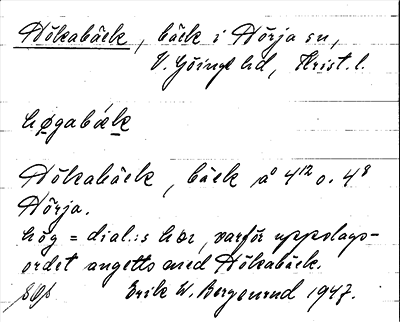 Hökabäck, bäck i Hörja sn,
V. Göinge hd, Krist. l.
høgabǽk
Hökabäck, bäck å 4¹² o. 4⁸
Hörja.
hög = dial:s hør, varför uppslags-
ordet angetts med Hökabäck.
Erik W. Bergenrud 1947.